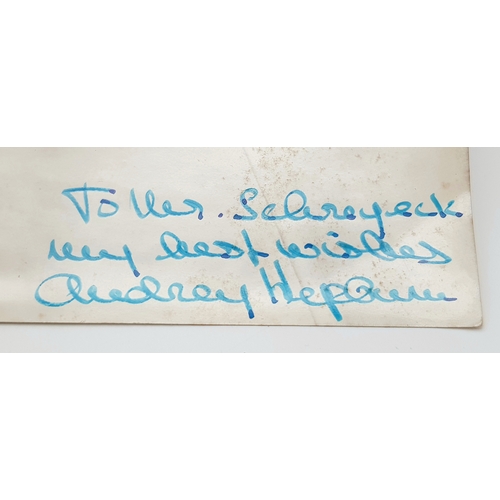 To Mr. Schreyeck
my best wishes
Audrey Hepburn